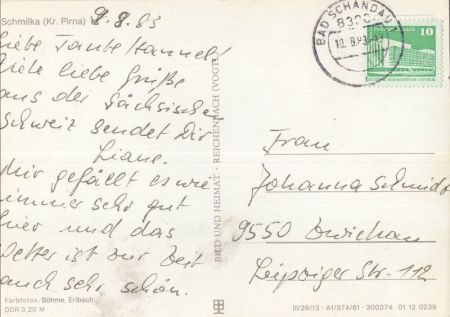 Schmilka (Kr. Pirna)
9.8.83
Liebe Tante Hannel!
Viele liebe Grüße
aus der Sächsischen
Schweiz sendet Dir
Liane.
Mir gefällt es wie
immer sehr gut
hier und das
Wetter ist zur Zeit
auch sehr schön.
Farbfotos: Böhme, Erlbach
DDR 0,20 M
BILD UND HEIMAT · REICHENBACH (VOGTL
BAD SCHANDAU
10.8.83
10
Frau
Johanna Schmidt
9550 Zwickau
Leipziger Str. 112
III/26/13 · A1/374/81 · 300374 01 12 0239